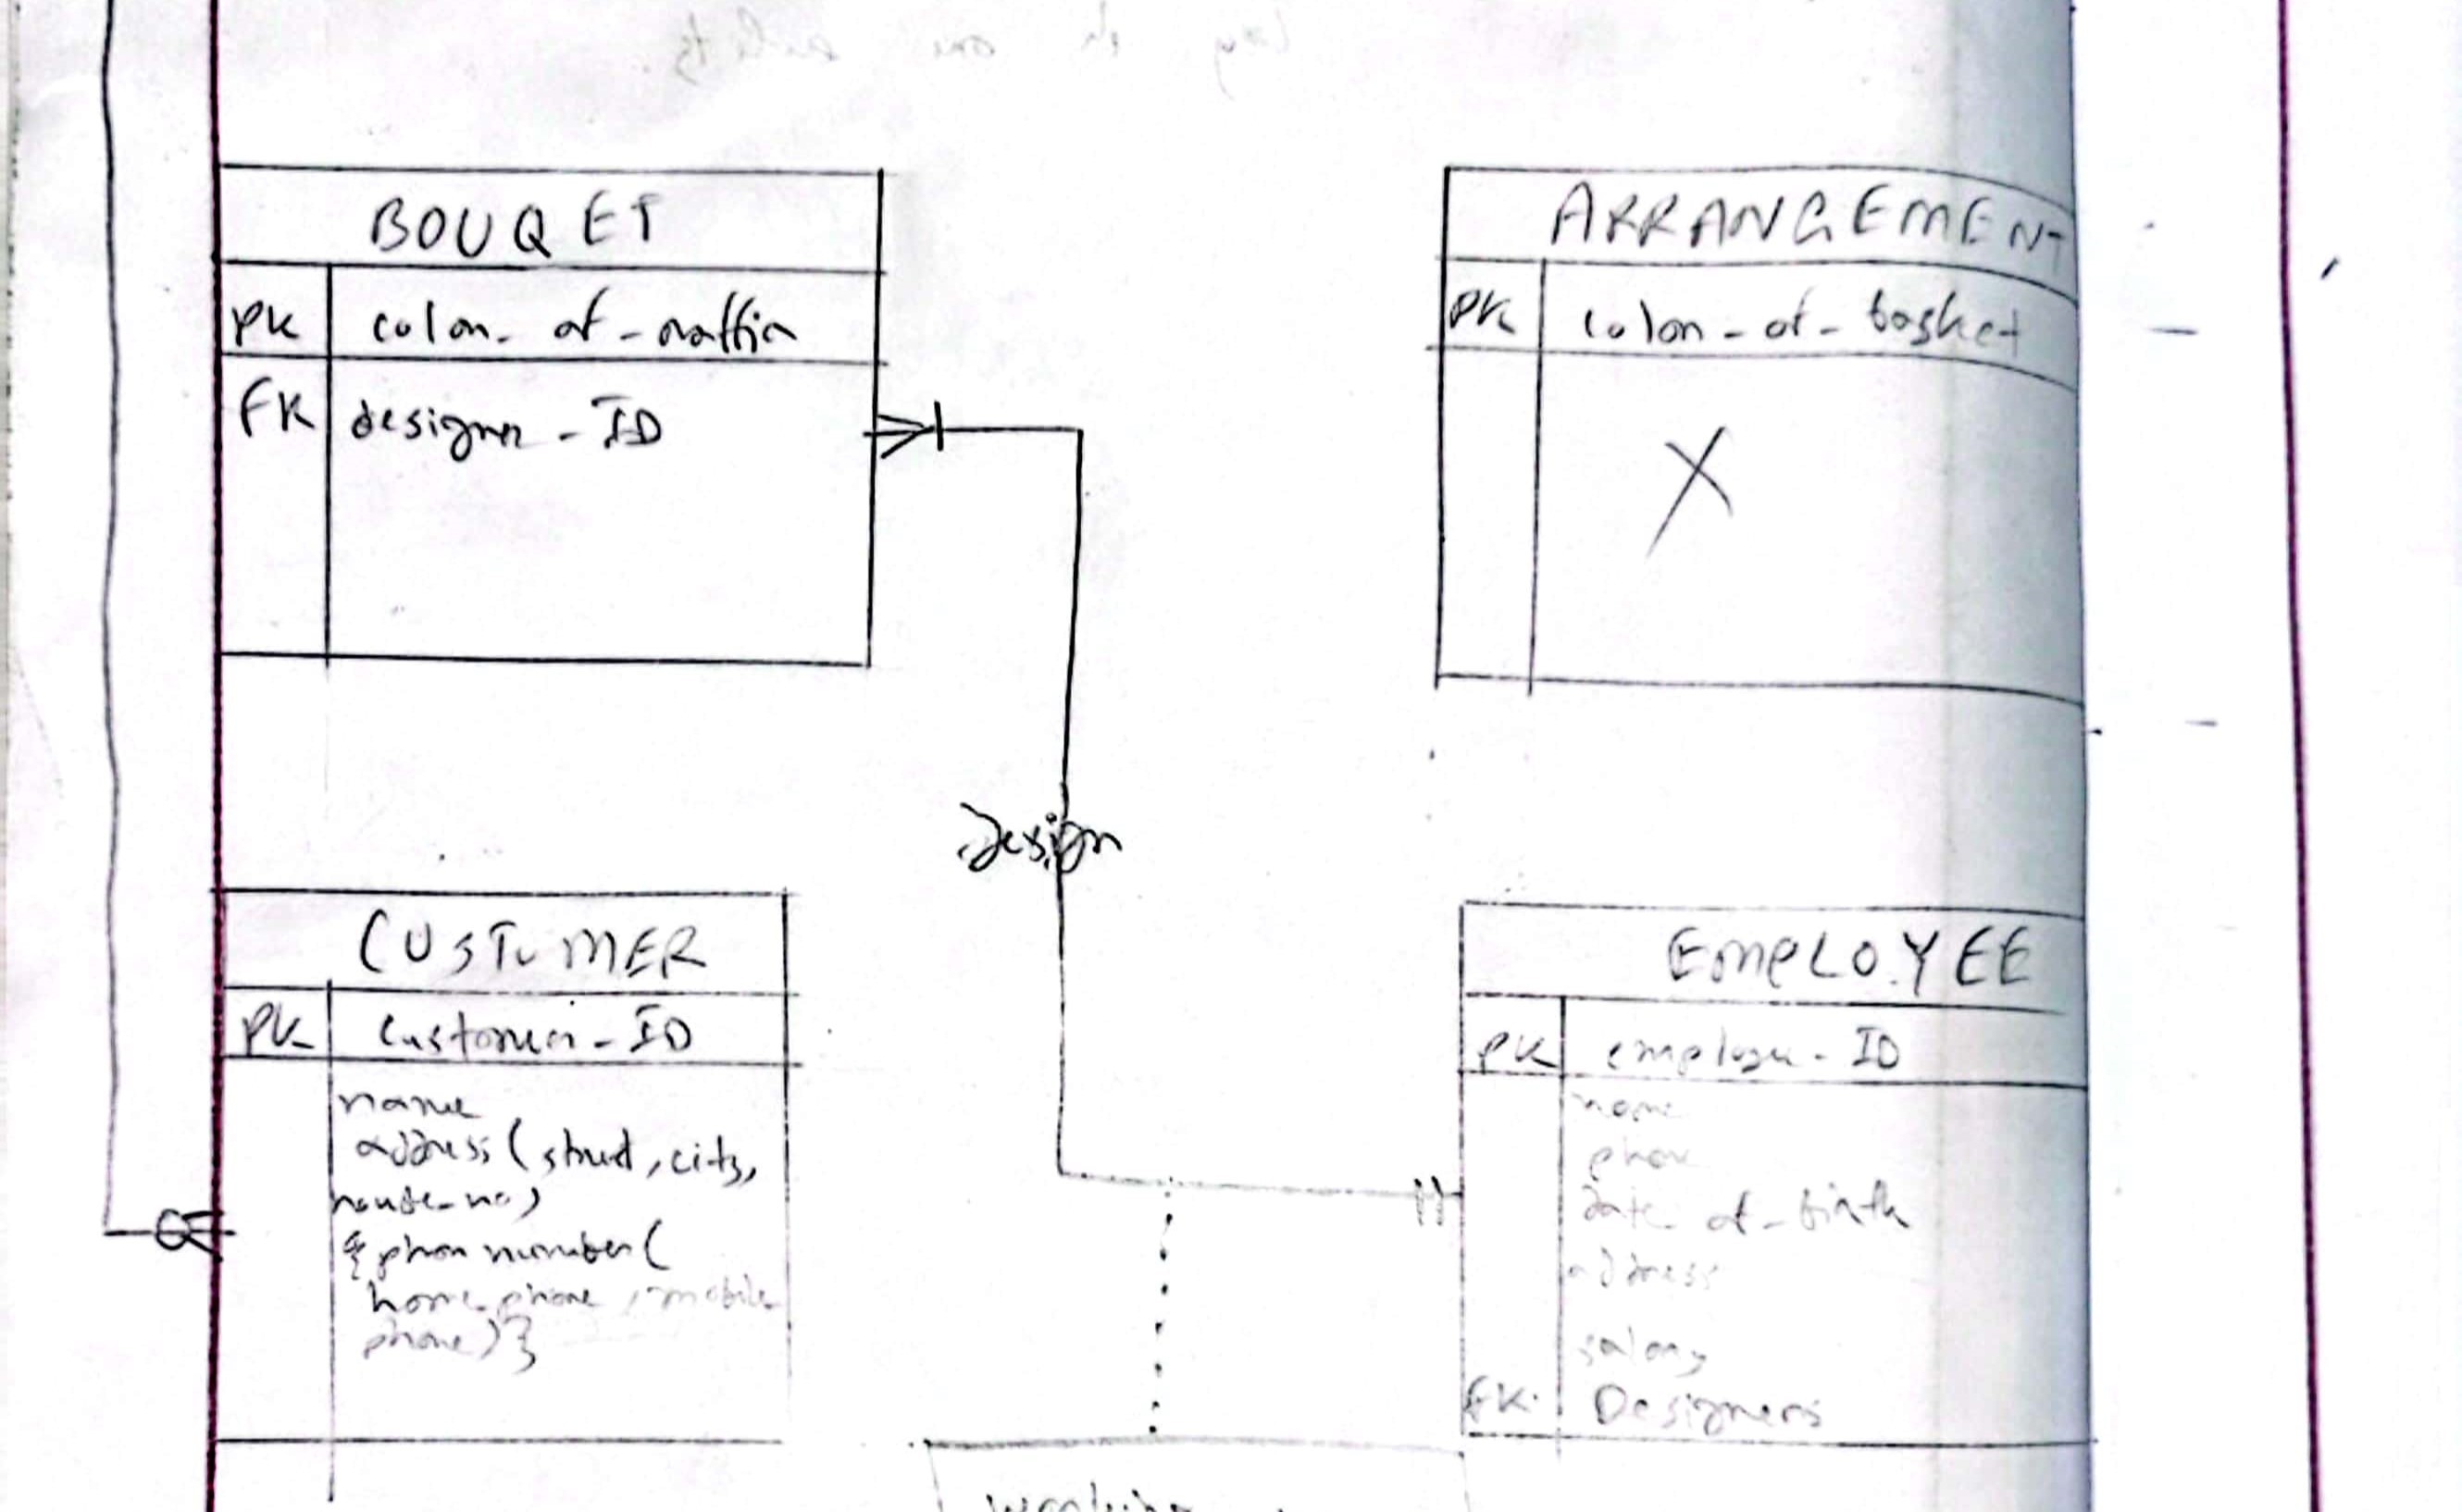 BOUQET
PK color_of_raffia
FK designer_ID
ARRANGEMENT
PK color_of_basket
X
Design
CUSTOMER
PK customer_ID
name
address (street, city,
house_no)
{phone number(
home_phone, mobile_
phone)}
EMPLOYEE
PK employee_ID
name
phone
date_of_birth
address
salary
FK Designers